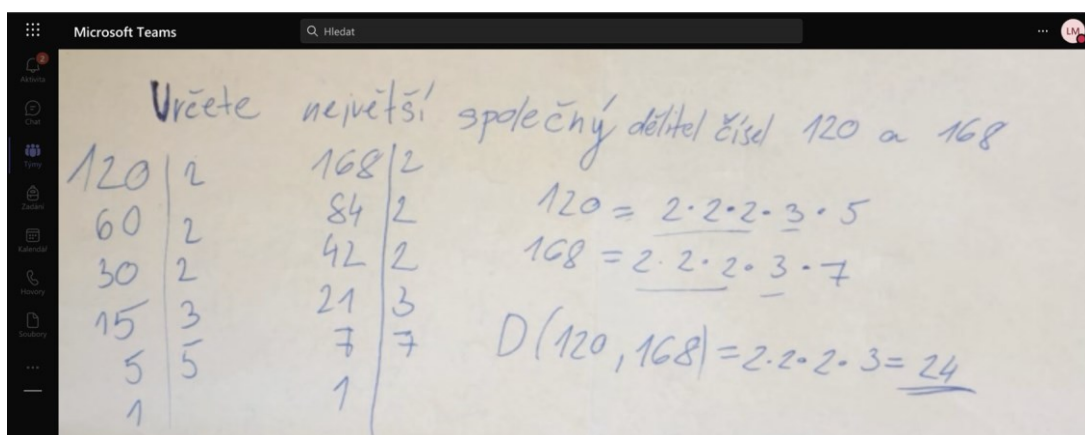 Microsoft Teams
Hledat
LM
2
Aktivita
Chat
Týmy
Zadání
Kalendář
Hovory
Soubory
Určete největší společný dělitel čísel 120 a 168
120 | 2
60 | 2
30 | 2
15 | 3
5 | 5
1
168 | 2
84 | 2
42 | 2
21 | 3
7 | 7
1
120 = 2·2·2·3·5
168 = 2·2·2·3·7
D(120, 168) = 2·2·2·3 = 24